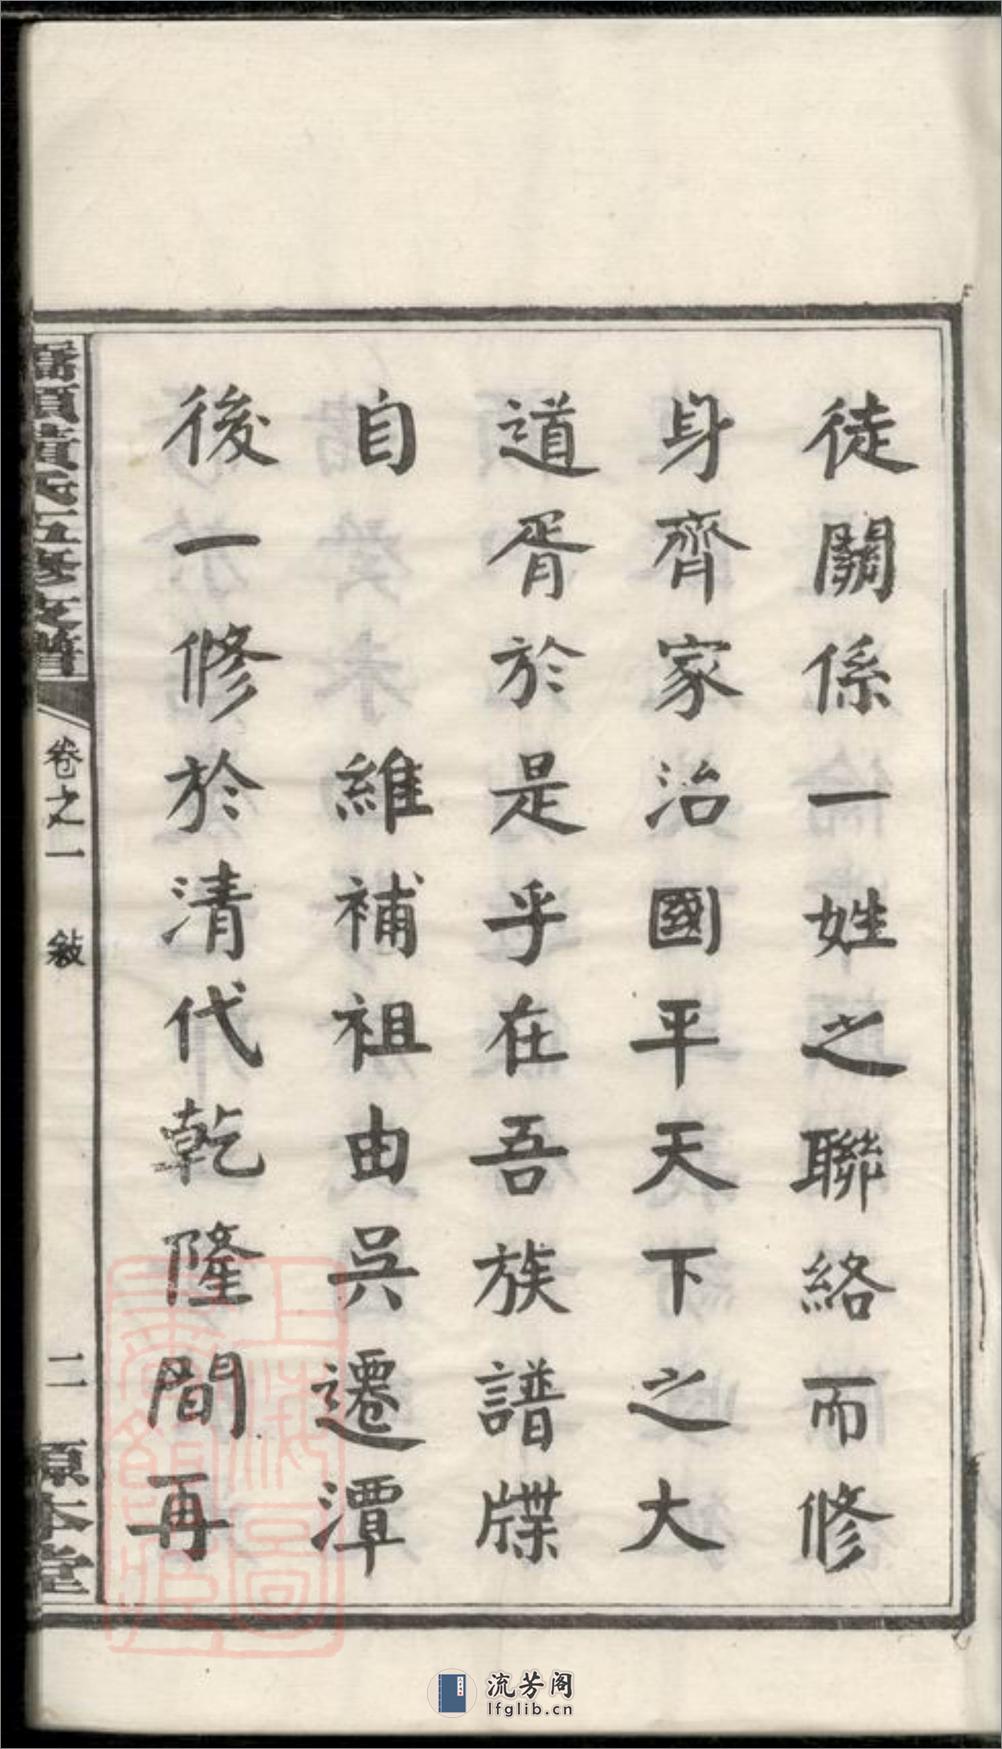 徒關係一姓之聯絡而修
身齊家治國平天下之大
道胥於是乎在吾族譜牒
自　維補祖由吳遷潭
後一修於清代乾隆間再
黃氏五修支譜
卷之一　敘
二　原本堂
上海圖書館藏
流芳阁
lfglib.cn